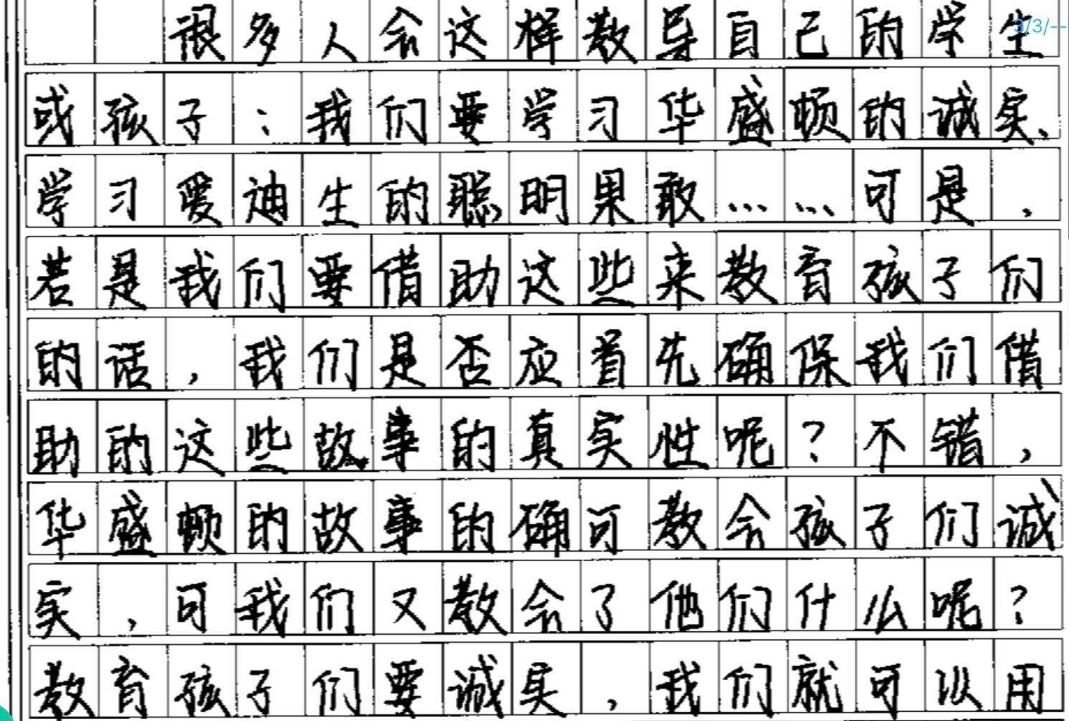 很多人会这样教导自己的学生
3/3/--
或孩子：我们要学习华盛顿的诚实、
学习爱迪生的聪明果敢……可是，
若是我们要借助这些来教育孩子们
的话，我们是否应首先确保我们借
助的这些故事的真实性呢？不错，
华盛顿的故事的确可教会孩子们诚
实，可我们又教会了他们什么呢？
教育孩子们要诚实，我们就可以用